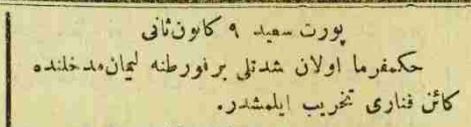 پورت سعید ۹ کانون‌ثانی
حکمفرما اولان شدتلی بر فورطنه لیمان مدخلنده
کائن فناری تخریب ایلمشدر.